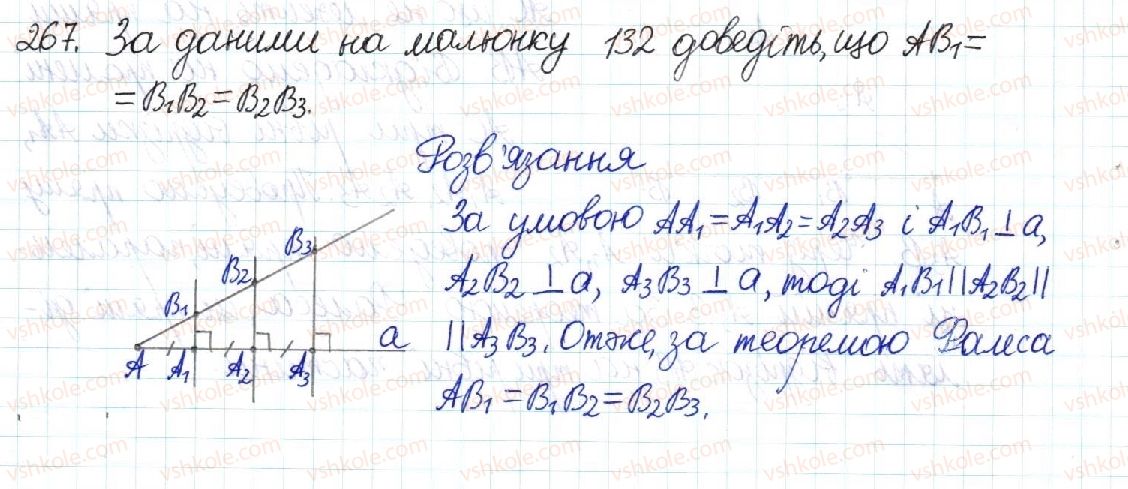 267. За даними на малюнку 132 доведіть, що AB₁=
= B₁B₂ = B₂B₃.
Розв'язання
За умовою AA₁ = A₁A₂ = A₂A₃ і A₁B₁ ⊥ a,
A₂B₂ ⊥ a, A₃B₃ ⊥ a, тоді A₁B₁ || A₂B₂ ||
|| A₃B₃. Отже, за теоремою Фалеса
AB₁ = B₁B₂ = B₂B₃.
B₃
B₂
B₁
a
A A₁ A₂ A₃
vshkole.com